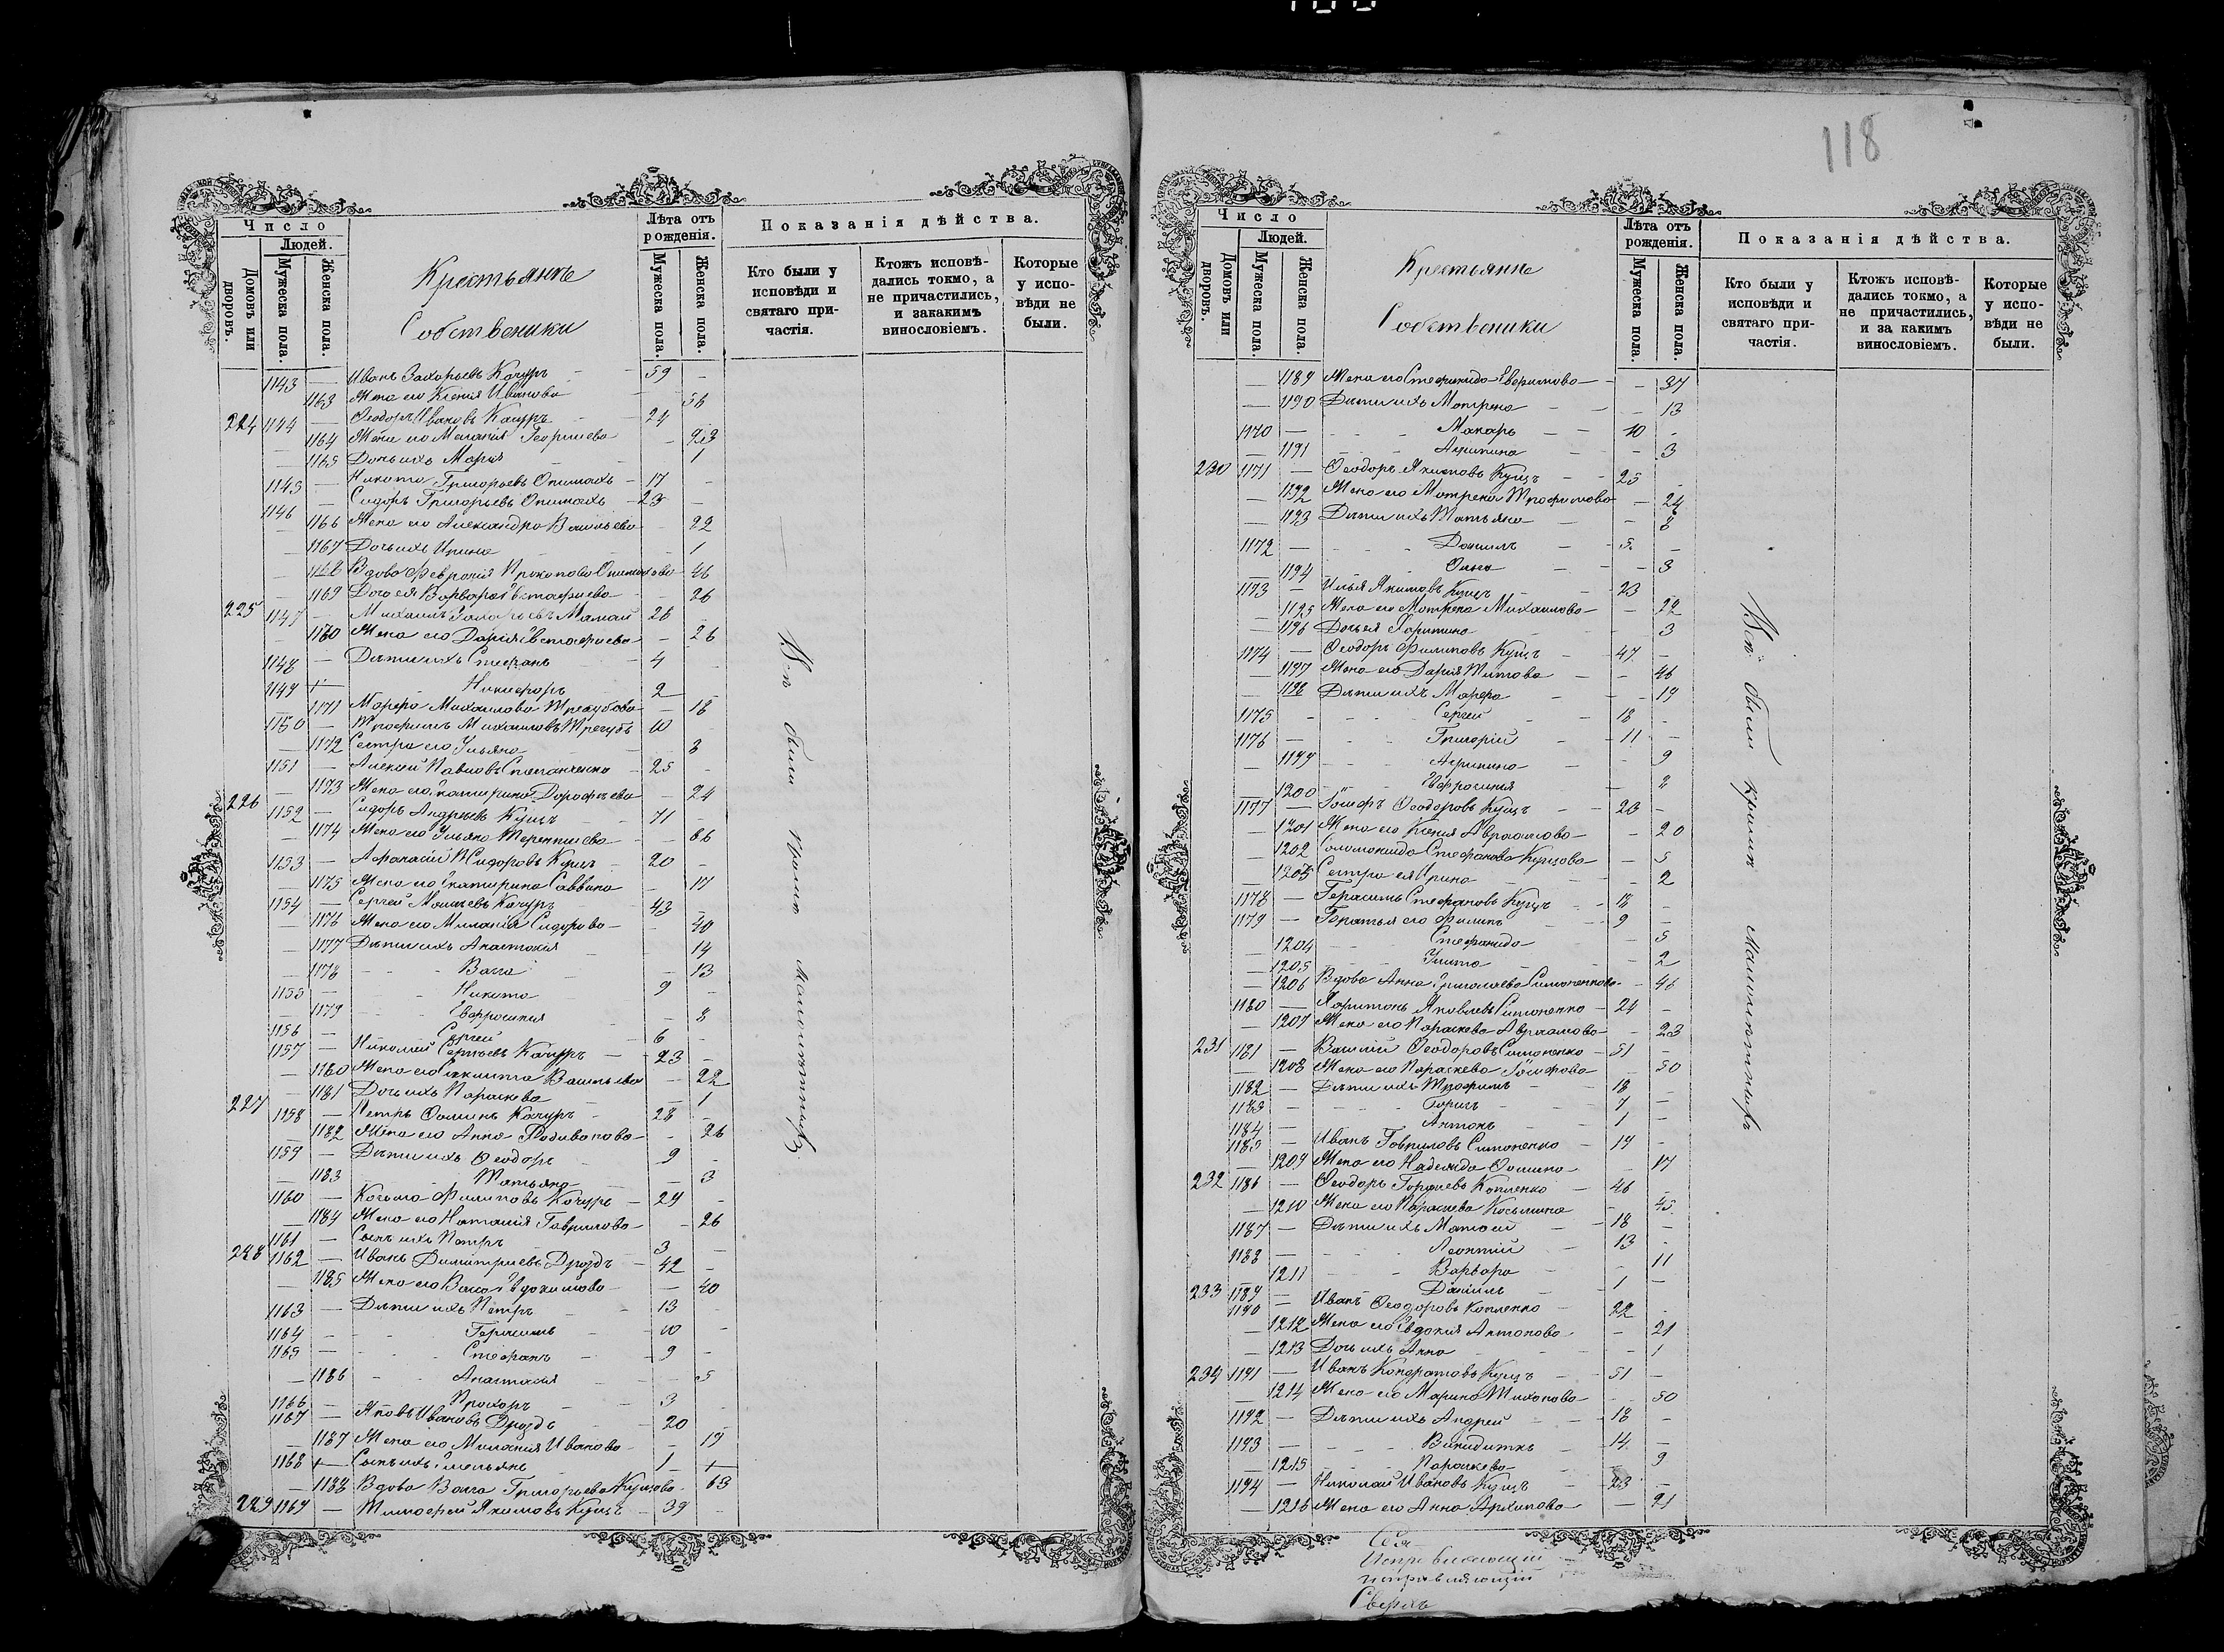 118
Число
Людей.
Домовъ или дворовъ.
Мужеска пола.
Женска пола.
Крестьяне
Собственики
Лѣта отъ рожденія.
Мужеска пола.
Женска пола.
Показанія дѣйства.
Кто были у исповѣди и святаго причастія.
Ктожъ исповѣдались токмо, а не причастились, и закакимъ винословіемъ.
Которые у исповѣди не были.
1143 — Иванъ Захарьевъ Качуръ — 59 —
1163 Жена его Ксенія Иванова — 56
224 1144 — Ѳеодоръ Ивановъ Качуръ — 24
1164 Жена его Меланія Георгиева — 23
1165 Дочь ихъ Марія — 1
1145 — Никита Григорьевъ — 17 —
1146 — Сидоръ Григорьевъ — 25 —
1166 Жена его Александра Васильева — 22
1167 Дочь ихъ Ирина — 1
1168 Вдова Феврония Прокопова — 46
1169 Дочь ея Варвара Евстафиева — 26
225 1147 — Михаилъ Мамай 26 —
1170 Жена его Дарія Евстафиева — 26
1148 — Дѣти ихъ Стефанъ — 4 —
1149 — Никифоръ 2
1171 Марфа Михаилова Трегубова — 18
1150 — Трофимъ Михаиловъ Трегубъ 10 —
1172 Сестра его Ульяна — 8
1151 — Алексей Павловъ Степанченко — 25 —
1173 Жена его Екатерина Дорофѣева — 24
226 1152 — Сидоръ Андреевъ Куцъ — 71 —
1174 Жена его Ульяна Терентиева — 66
1153 — Афанасий Сидоровъ Куцъ 20 —
1175 Жена его Екатерина Саввина — 17
1154 — Сергей Качуръ — 43 —
1176 Жена его Милания Сидорова — 40
1177 Дѣти ихъ Анастасия — 14
1178 — Васса — 13
1155 — Никита 9 —
1179 — Евфросиния — 8
1156 — Сергей 6 —
1157 — Николай Сергѣевъ Качуръ — 23 —
1180 Жена его Васильева — 22
1181 Дочь ихъ Параскева — 1
227 1158 — Петръ Ѳоминъ Качуръ — 28 —
1182 Жена его Анна Родивонова — 26
1159 — Дѣти ихъ Ѳеодоръ 9 —
1183 Татьяна — 3
1160 — Косьма Филиповъ Качуръ — 24 —
1184 Жена его Наталія Гаврилова — 26
1161 — Сынъ ихъ Петръ 3 —
228 1162 — Иванъ Димитриевъ Дроздъ — 42 —
1185 Жена его Васса Евдокимова — 40
1163 — Дѣти ихъ Петръ 13
1164 — Герасимъ 10 —
1165 — Стефанъ — 9 —
1186 — Анастасия — 5
1166 — Прохоръ 3 —
1167 — Яковъ Ивановъ Дроздъ 20 —
1187 Жена его Милания Иванова — 19
1168 — Сынъ ихъ Емельянъ 1 —
1188 Вдова Васса Григорьева Куцова — 63
229 1169 — Тимофей Якимовъ Куцъ — 39 —
Всѣ были кромѣ малолѣтнихъ
Число
Людей.
Домовъ или дворовъ.
Мужеска пола.
Женска пола.
Крестьяне
Собственики
Лѣта отъ рожденія.
Мужеска пола.
Женска пола.
Показанія дѣйства.
Кто были у исповѣди и святаго причастія.
Ктожъ исповѣдались токмо, а не причастились, и за какимъ винословіемъ.
Которые у исповѣди не были.
— 1189 Жена его Стефанида — 37
— 1190 Дѣти ихъ Матрена — 13
1170 — Макаръ — 10 —
— 1191 Агрипина — 3
230 1171 — Ѳеодоръ Якимовъ Куцъ — 25 —
— 1192 Жена его Матрена Трофимова — 24
— 1193 Дѣти ихъ Татьяна — 8
1172 — Данилъ — 5 —
— 1194 Ольга — 3
1173 — Илья Якимовъ Куцъ — 23 —
— 1195 Жена его Матрена Михаилова — 22
— 1196 Дочь ея Харитина — 3
1174 — Ѳеодоръ Филиповъ Куцъ — 47 —
— 1197 Жена его Дарія Титова — 46
— 1198 Дѣти ихъ Марфа — 19
1175 — Сергей — 18 —
1176 — Григорій — 11 —
— 1199 Агрипина — 9
— 1200 Евфросиния — 8
1177 — Іосифъ Ѳеодоровъ Куцъ — 20 —
— 1201 Жена его Ксения Авраамова — 20
— 1202 Соломонида Стефанова Куцова — 5
— 1203 Сестра ея Ирина — 2
1178 — Герасимъ Стефановъ Куцъ — 18 —
1179 — Братья его Филипъ — 9 —
— 1204 Стефанида — 5
— 1205 Улита — 2
— 1206 Вдова Анна Симоненкова — 46
1180 — Харитонъ Яковлевъ Симоненко — 24 —
— 1207 Жена его Параскева Авраамова — 23
231 1181 — Василій Ѳеодоровъ Симоненко — 51 —
— 1208 Жена его Параскева Іосифова — 50
1182 — Дѣти ихъ Трофимъ — 18 —
1183 — 7 —
1184 — Антонъ — 1 —
1185 — Иванъ Гавриловъ Симоненко — 19 —
— 1209 Жена его Надежда Ѳомина — 17
232 1186 — Ѳеодоръ Копленко — 46 —
— 1210 Жена его Параскева Косьмина — 45
1187 — Дѣти ихъ — 18 —
1188 — Леонтій — 13 —
— 1211 Варвара — 11
233 1189 — Даніилъ — 1 —
1190 — Иванъ Ѳеодоровъ Копленко — 22 —
— 1212 Жена его Евдокия Антонова — 21
— 1213 Дочь ихъ Анна — 1
234 1191 — Иванъ Кондратовъ Куцъ — 51 —
— 1214 Жена его Марина Тихонова — 50
1192 — Дѣти ихъ Андрей — 18 —
1193 — Винидиктъ — 14 —
— 1215 Параскева — 9
1194 — Николай Ивановъ Куцъ — 23 —
— 1216 Жена его Анна Архипова — 21
Всѣ были кромѣ малолѣтнихъ